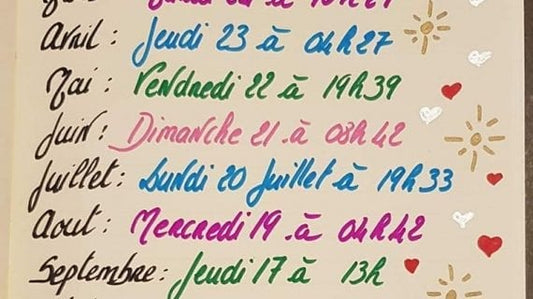 Avril : Jeudi 23 à 04h27
Mai : Vendredi 22 à 19h39
Juin : Dimanche 21 à 08h42
Juillet : Lundi 20 Juillet à 19h33
Aout : Mercredi 19 à 04h42
Septembre : Jeudi 17 à 13h